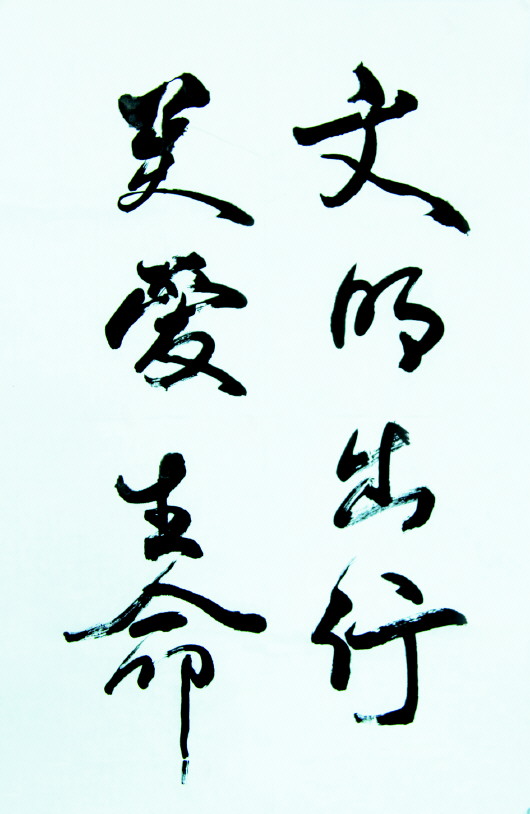 文明出行
关爱生命